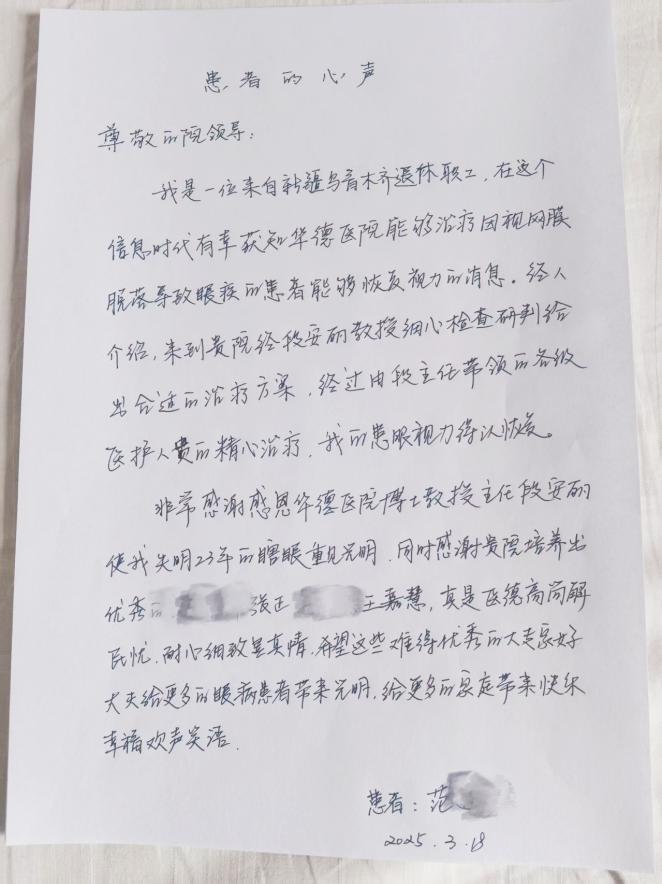 患者的心声
尊敬的院领导：
我是一位来自新疆乌鲁木齐退休职工，在这个
信息时代有幸获知华德医院能够治疗因视网膜
脱落导致眼疾的患者能够恢复视力的消息。经人
介绍，来到贵院经段安丽教授细心检查研判给
出合适的治疗方案，经过由段主任带领的各级
医护人员的精心治疗，我的患眼视力得以恢复。
非常感谢感恩华德医院博士教授主任段安丽
使我失明23年的瞎眼重见光明，同时感谢贵院培养出
优秀的 张正 王嘉慧，真是医德高尚解
民忧，耐心细致显真情，希望这些难得优秀的大专家好
大夫给更多的眼病患者带来光明，给更多的家庭带来快乐
幸福欢声笑语。
患者：范
2025.3.18